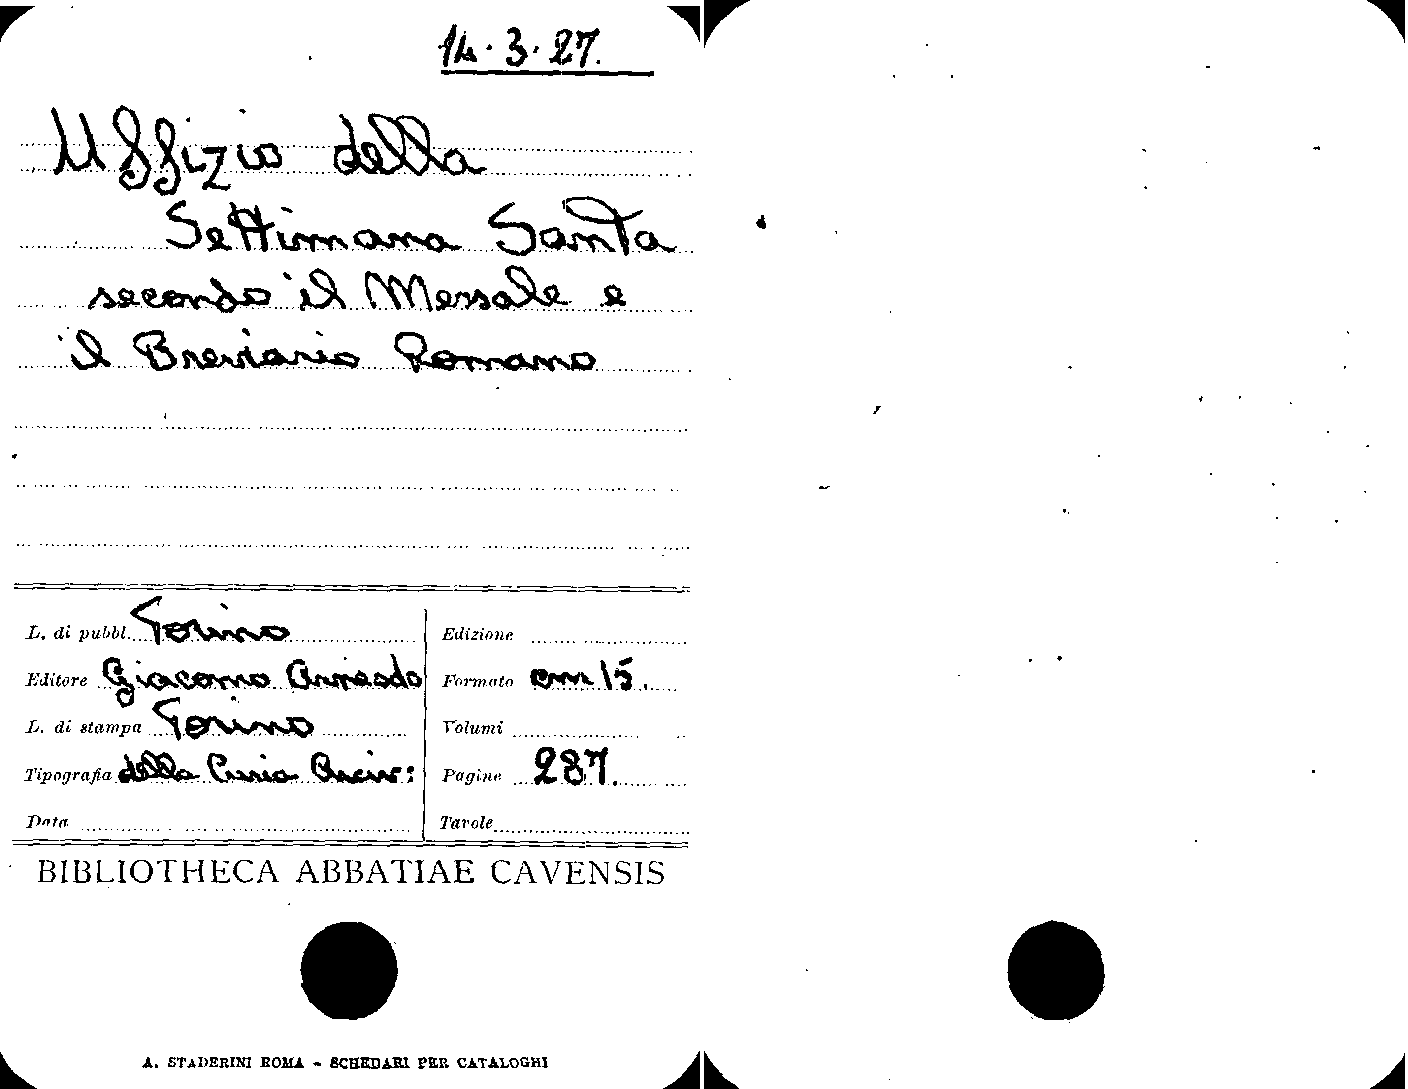 14.3.27.
Uffizio della
Settimana Santa
secondo il Messale e
il Breviario Romano
L. di pubbl. Torino
Editore Giacomo Arneodo
L. di stampa Torino
Tipografia della Curia Arciv:
Data
Edizione
Formato cm 15.
Volumi
Pagine 287.
Tavole
BIBLIOTHECA ABBATIAE CAVENSIS
A. STADERINI ROMA - SCHEDARI PER CATALOGHI